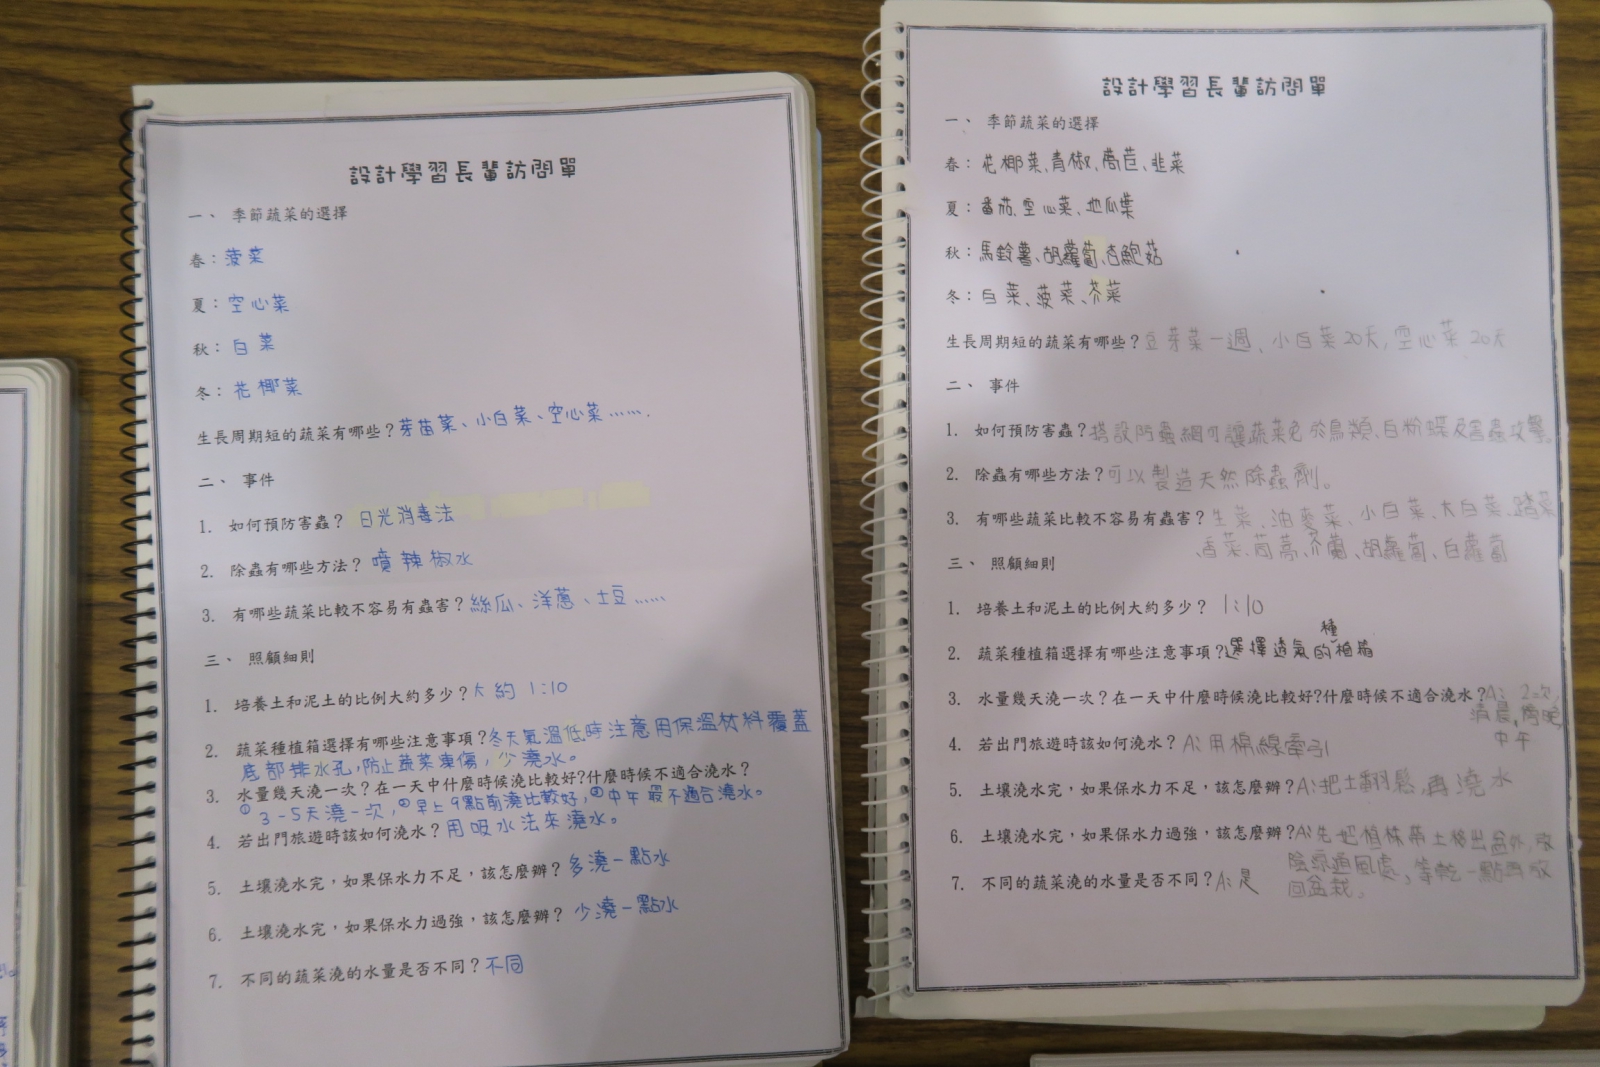 設計學習長輩訪問單
一、 季節蔬菜的選擇
春：菠菜
夏：空心菜
秋：白菜
冬：花椰菜
生長周期短的蔬菜有哪些？芽苗菜、小白菜、空心菜…….
二、 事件
1. 如何預防害蟲？ 日光消毒法
2. 除蟲有哪些方法？ 噴辣椒水
3. 有哪些蔬菜比較不容易有蟲害？絲瓜、洋蔥、土豆……
三、 照顧細則
1. 培養土和泥土的比例大約多少？大約 1:10
2. 蔬菜種植箱選擇有哪些注意事項？冬天氣溫低時注意用保溫材料覆蓋
底部排水孔,防止蔬菜凍傷,少澆水。
3. 水量幾天澆一次？在一天中什麼時候澆比較好?什麼時候不適合澆水？
①3-5天澆一次,②早上9點前澆比較好,③中午最不適合澆水。
4. 若出門旅遊時該如何澆水？用吸水法來澆水。
5. 土壤澆水完，如果保水力不足，該怎麼辦？多澆一點水
6. 土壤澆水完，如果保水力過強，該怎麼辦？ 少澆一點水
7. 不同的蔬菜澆的水量是否不同？不同
設計學習長輩訪問單
一、 季節蔬菜的選擇
春：花椰菜、青椒、萵苣、韭菜
夏：番茄、空心菜、地瓜葉
秋：馬鈴薯、胡蘿蔔、杏鮑菇
冬：白菜、菠菜、芥菜
生長周期短的蔬菜有哪些？豆芽菜一週、小白菜20天,空心菜20天
二、 事件
1. 如何預防害蟲？搭設防蟲網可讓蔬菜免於鳥類、白粉蝶及害蟲攻擊。
2. 除蟲有哪些方法？可以製造天然除蟲劑。
3. 有哪些蔬菜比較不容易有蟲害？生菜、油麥菜、小白菜、大白菜、
、香菜、茼蒿、芥蘭、胡蘿蔔、白蘿蔔
三、 照顧細則
1. 培養土和泥土的比例大約多少？ 1:10
2. 蔬菜種植箱選擇有哪些注意事項？選擇透氣的種植箱
3. 水量幾天澆一次？在一天中什麼時候澆比較好?什麼時候不適合澆水？A: 2次,
清晨,傍晚
中午
4. 若出門旅遊時該如何澆水？A:用棉線牽引
5. 土壤澆水完，如果保水力不足，該怎麼辦？A:把土翻鬆,再澆水
6. 土壤澆水完，如果保水力過強，該怎麼辦？A:先把植株帶土移出盆外,放
陰涼通風處,等乾一點再放
回盆栽。
7. 不同的蔬菜澆的水量是否不同？A:是